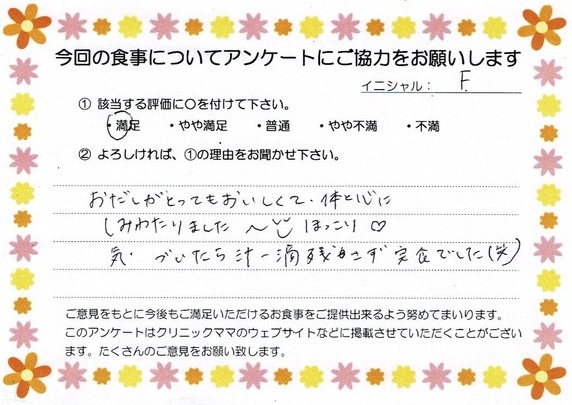 今回の食事についてアンケートにご協力をお願いします
イニシャル： F.
① 該当する評価に○を付けて下さい。
・満足 ・やや満足 ・普通 ・やや不満 ・不満
② よろしければ、①の理由をお聞かせ下さい。
おだしがとってもおいしくて、体と心に
しみわたりました 〜 ほっこり♡
気づいたら汁一滴残さず完食でした(笑)
ご意見をもとに今後もご満足いただけるお食事をご提供出来るよう努めてまいります。
このアンケートはクリニックママのウェブサイトなどに掲載させていただくことがござい
ます。たくさんのご意見をお願い致します。